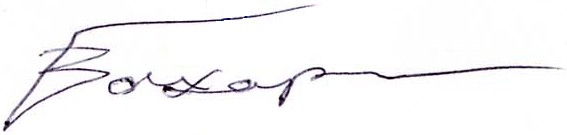 Бохар